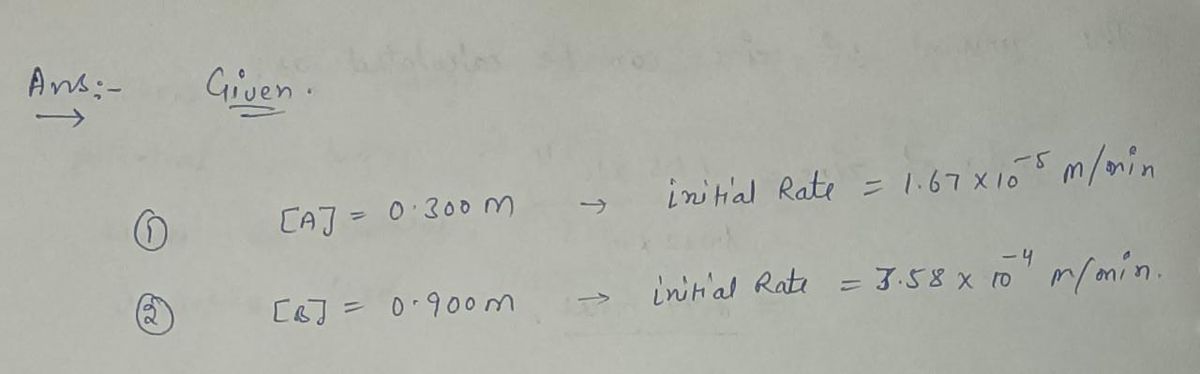 Ans:- Given.
① [A] = 0.300 M → initial Rate = 1.67 × 10⁻⁵ M/min
② [B] = 0.900 M → initial Rate = 3.58 × 10⁻⁴ M/min.